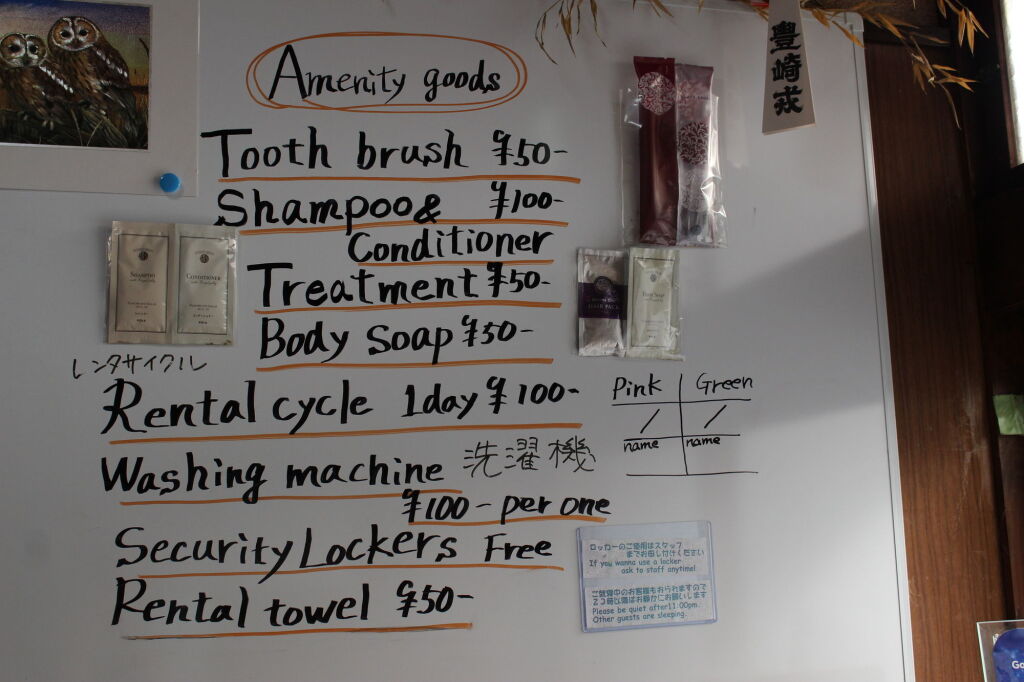 Amenity goods
豊崎戎
Tooth brush ¥50-
Shampoo & ¥100-
Conditioner
SHAMPOO
CONDITIONER
Treatment ¥50-
HAIR PACK
Body Soap
Body soap ¥50-
レンタサイクル
Rental cycle 1day ¥100-
Pink Green
/ /
name name
Washing machine 洗濯機
¥100- per one
Security Lockers Free
ロッカーのご使用はスタッフ
までお申し付けください
If you wanna use a locker
ask to staff anytime!
ご就寝中のお客様もおられますので
23時以降はお静かにお願いします
Please be quiet after11:00pm.
Other guests are sleeping.
Rental towel ¥50-
Go